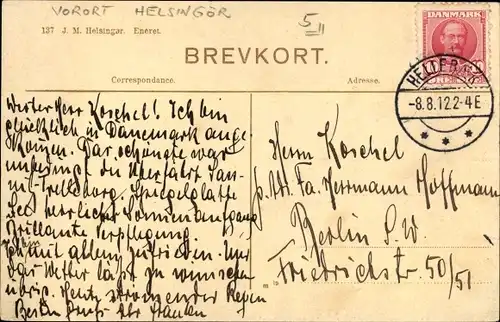 VORORT HELSINGÖR
5/II
137 J. M. Helsingør. Eneret.
DANMARK
BREVKORT.
Correspondance. Adresse.
-8.8.12 2-4E
Werter Herr Koschel! Ich bin
glücklich in Dänemark ange-
kommen. Das schönste war
unbedingt die Überfahrt Sass-
nitz-Trelleborg. Spiegelglatte
See, herrlicher Sonnenaufgang
Brillante Verpflegung
Ich bin mit allem zufrieden. Nur
das Wetter läßt zu wünschen
übrig. Heute strömender Regen
Besten Gruß Ihr
Herrn Koschel
p. Adr. Fa. Herrmann Hoffmann
Berlin S.W.
Friedrichstr. 50/51